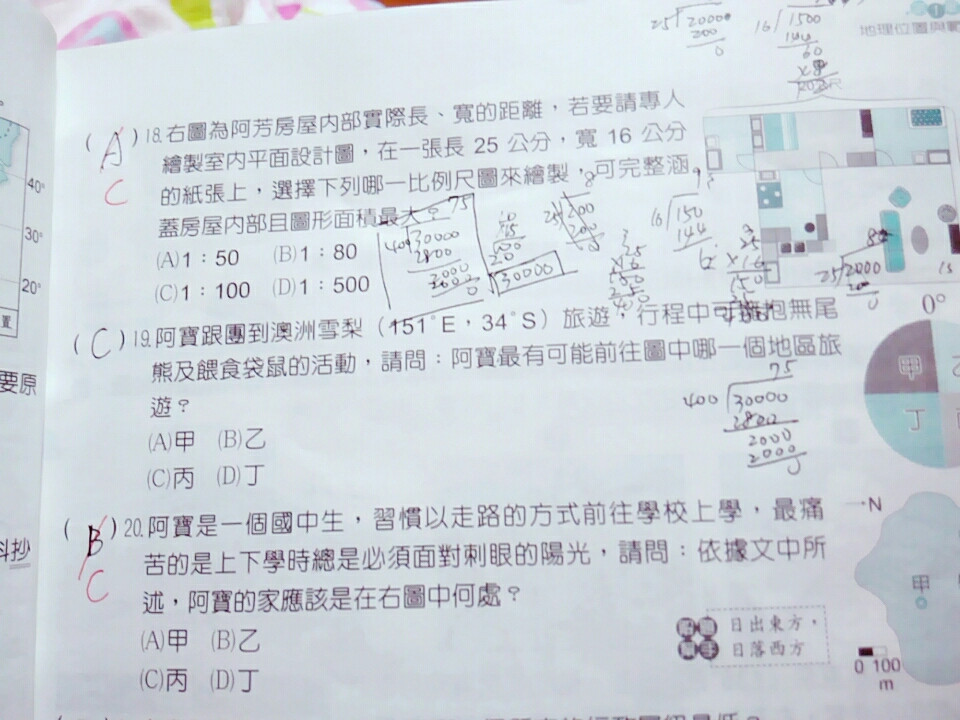 地理位置與
(A)18.右圖為阿芳房屋內部實際長、寬的距離，若要請專人
C
繪製室內平面設計圖，在一張長 25 公分，寬 16 公分
的紙張上，選擇下列哪一比例尺圖來繪製，可完整涵
蓋房屋內部且圖形面積最大？
(A)1：50 (B)1：80
(C)1：100 (D)1：500
(C)19.阿寶跟團到澳洲雪梨（151°E，34°S）旅遊，行程中可擁抱無尾
熊及餵食袋鼠的活動，請問：阿寶最有可能前往圖中哪一個地區旅
遊？
(A)甲 (B)乙
(C)丙 (D)丁
(B)20.阿寶是一個國中生，習慣以走路的方式前往學校上學，最痛
C
苦的是上下學時總是必須面對刺眼的陽光，請問：依據文中所
述，阿寶的家應該是在右圖中何處？
(A)甲 (B)乙
(C)丙 (D)丁
日出東方，
日落西方
40°
30°
20°
置
要原
抄
25 20000
200
0
16 1500
144
60
75
400 30000
2800
2000
2000
0
30000
16 150
144
6
25 2000
75
400 30000
2800
2000
2000
0
0°
甲
乙
丁
N
甲
0 100
m